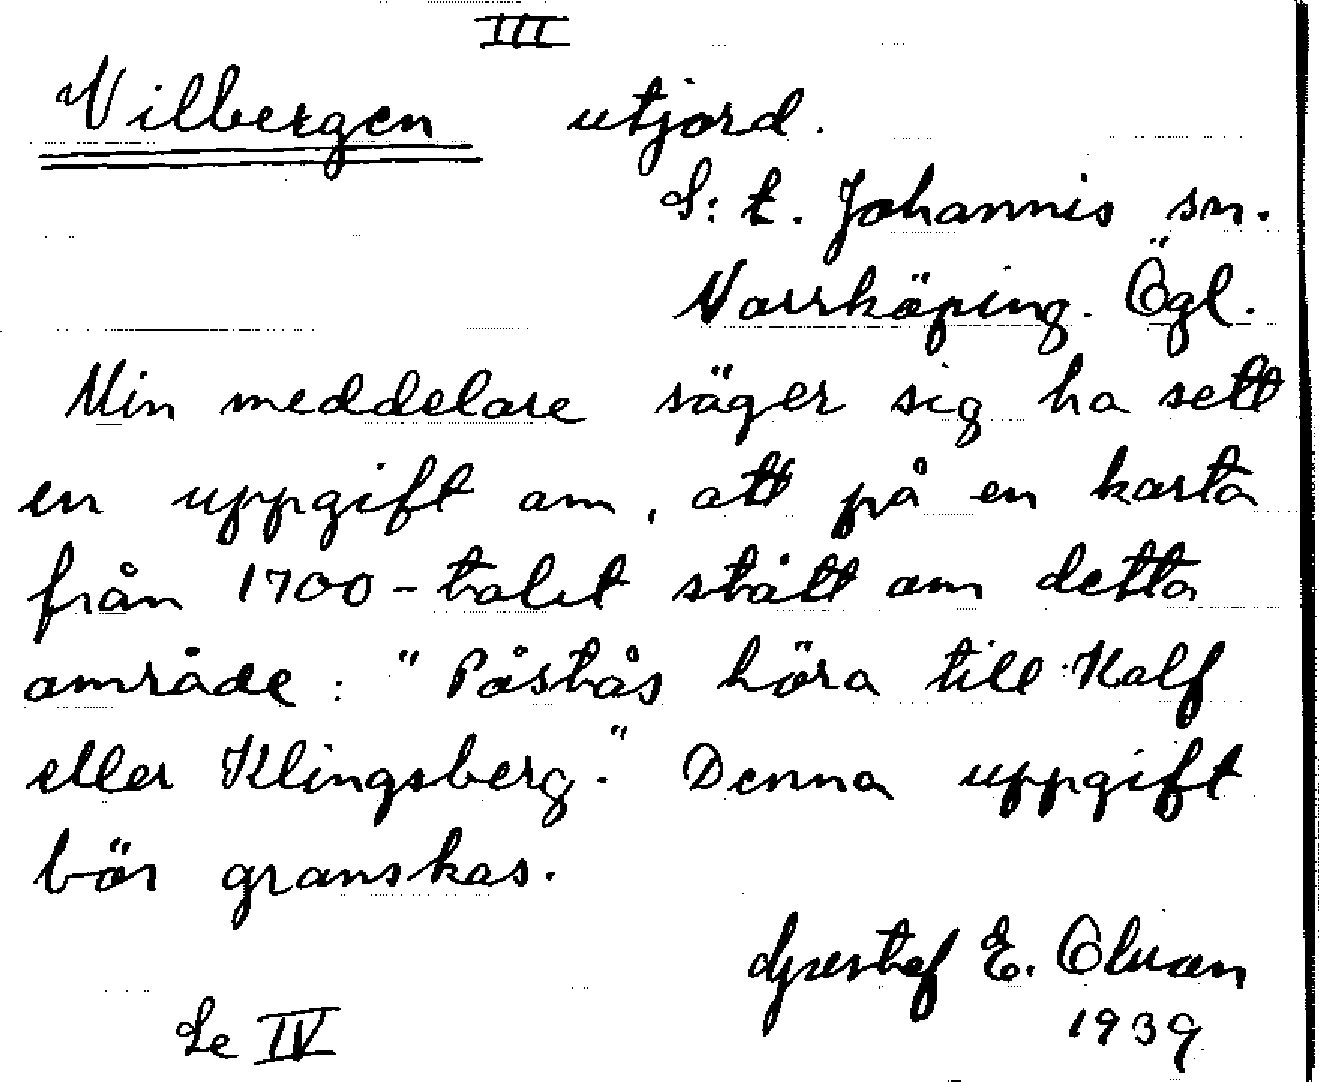 III
Vilbergen utjord.
S:t. Johannis sn.
Norrköping. Ögl.
Min meddelare säger sig ha sett
en uppgift om, att på en karta
från 1700-talet stått om detta
område: "Påstås höra till Kalf
eller Klingsberg." Denna uppgift
bör granskas.
Gustaf E. Olsson
1939
Se IV